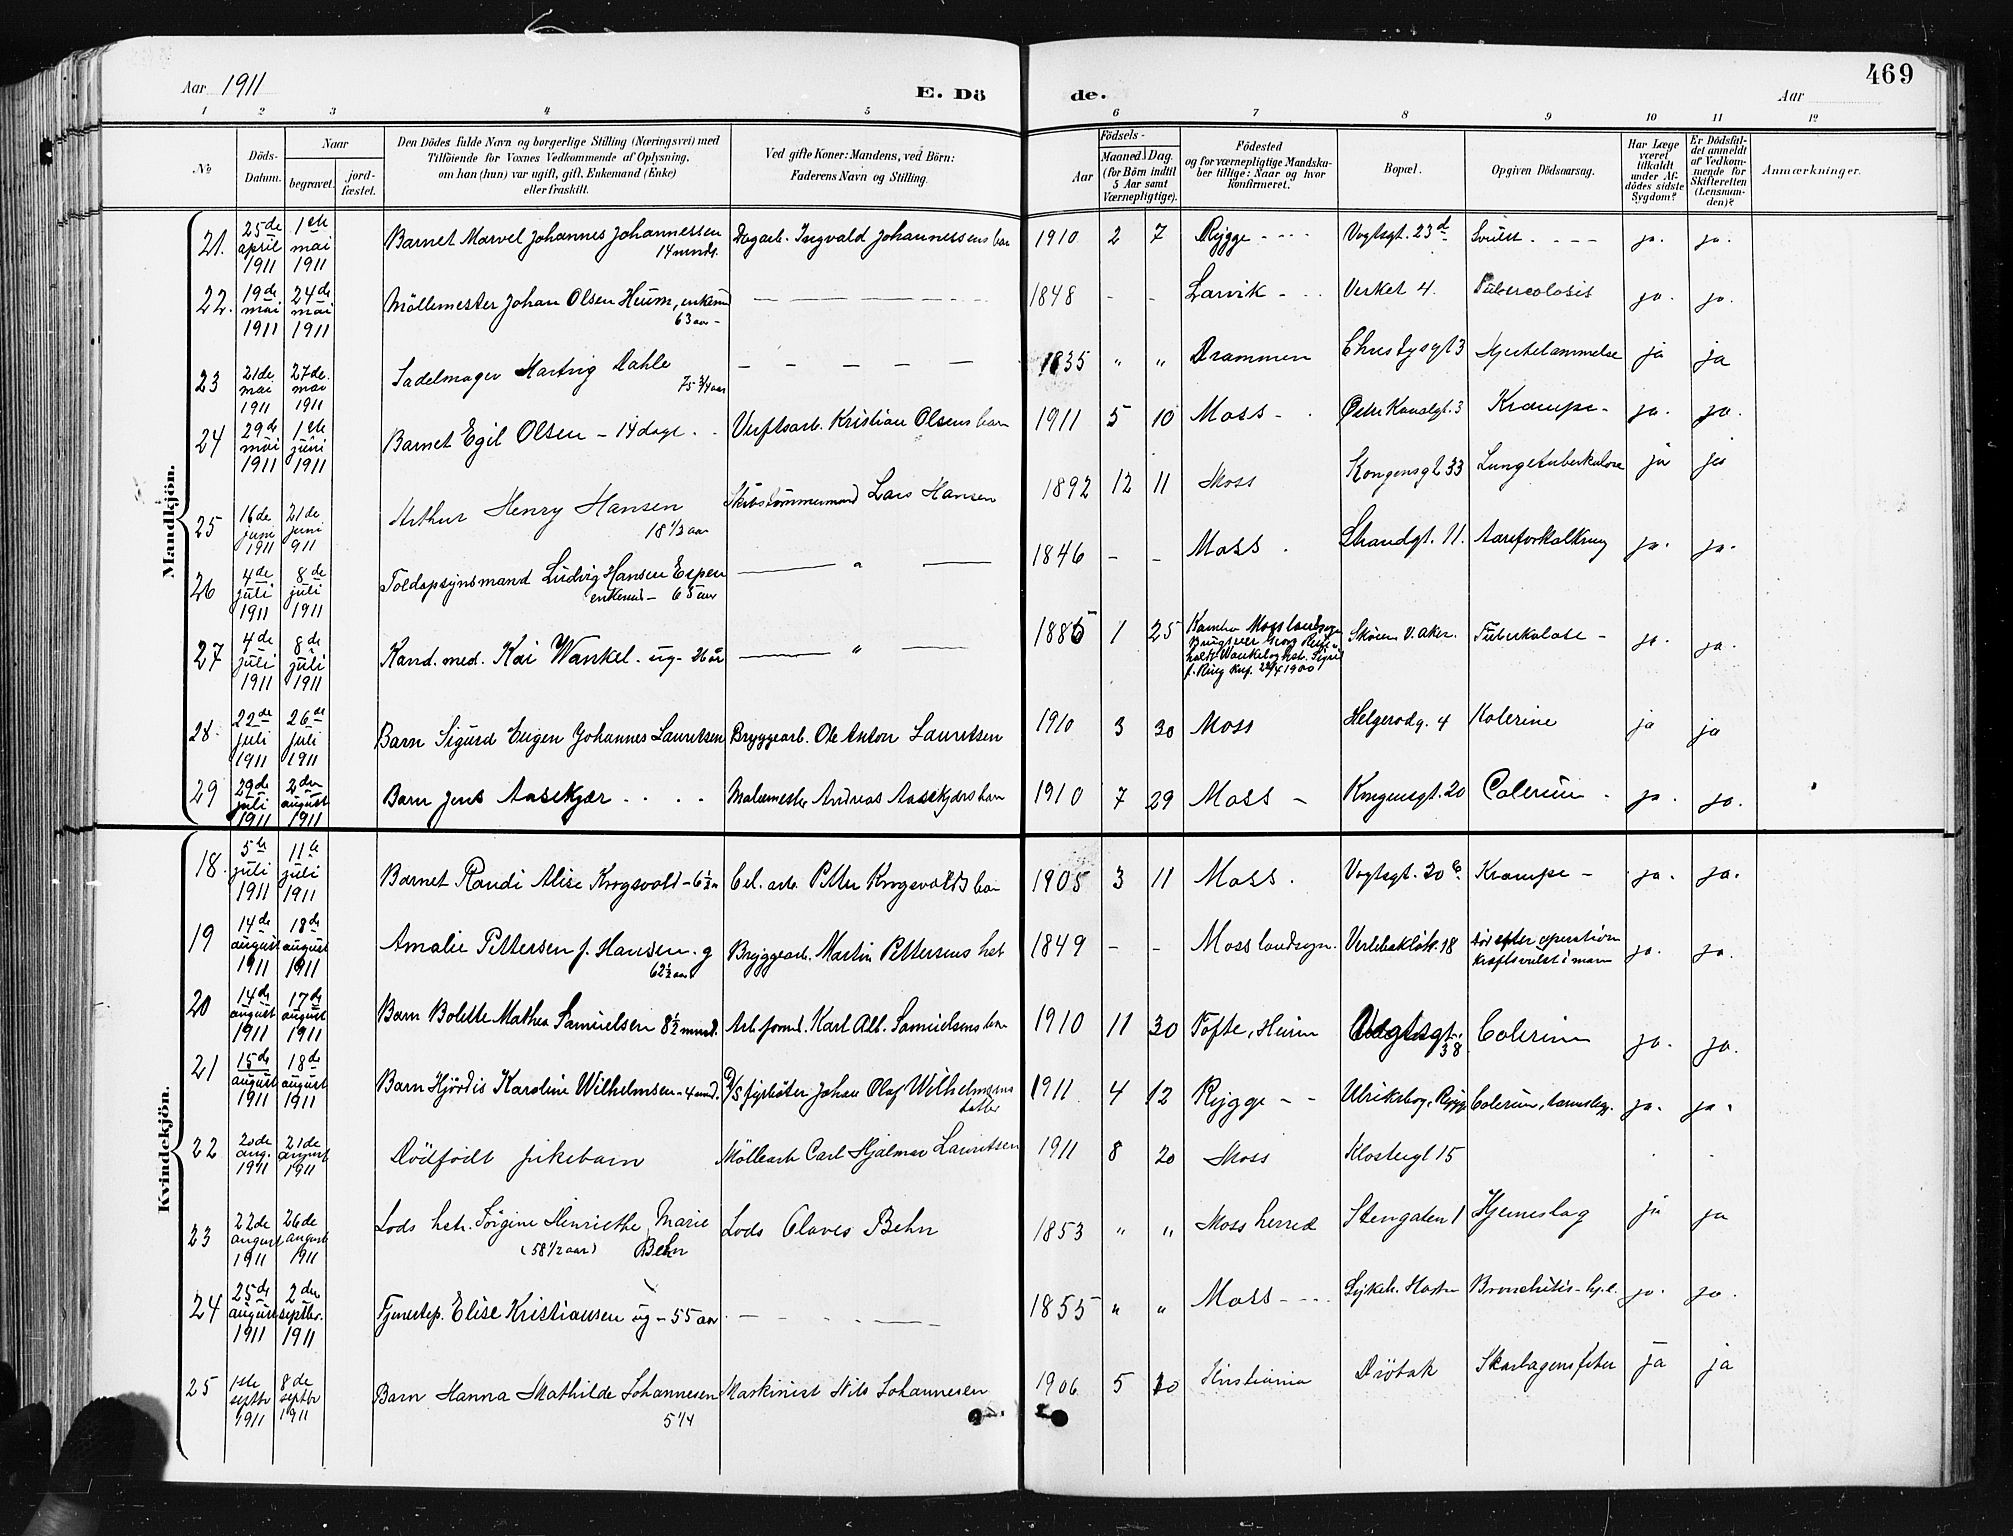 469
Aar 1911
E. Dö
de.
Aar
1 2 3 4 5 6 7 8 9 10 11 12
No
Döds-Datum.
Naar
begravet.
jord-fæstet.
Den Dödes fulde Navn og borgerlige Stilling (Næringsvei) med
Tilföiende for Voxnes Vedkommende af Oplysning,
om han (hun) var ugift, gift, Enkemand (Enke)
eller fraskilt.
Ved gifte Koner: Mandens, ved Börn:
Faderens Navn og Stilling.
Födsels-
Aar
Maaned. Dag.
(for Börn indtil
5 Aar samt
Værnepligtige).
Födested
og for værnepligtige Mandska-
ber tillige: Naar og hvor
konfirmeret.
Bopæl.
Opgiven Dödsaarsag.
Har Læge
været
tilkaldt
under Af-
dödes sidste
Sygdom?
Er Dödsfal-
det anmeldt
af Vedkom-
mende for
Skifteretten
(Lensman-
den)?
Anmærkninger.
Mandkjön.
21. 25de april 1911 1ste mai 1911 Barnet Marvel Johannes Johannessen 14 mnds. Dagarb. Ingvald Johannessens barn 1910 2 7 Rygge Vogtsgt. 23d Svulst ja. ja.
22. 19de mai 1911 24de mai 1911 Möllemester Johan Olsen Heum, enkemd 63 aar 1848 - - Larvik Verket 4. Tuberculosis ja. ja.
23 21de mai 1911 27de mai 1911 Sadelmager Hartvig Dahle 75 3/4 aar 1835 " " Drammen 3 Hjertelammelse ja ja
24 29de mai 1911 1ste juni 1911 Barnet Egil Olsen - 14 dage. Verftsarb. Kristian Olsens barn 1911 5 10 Moss Østre Kanalgt. 3 Krampe ja. ja.
25 16de juni 1911 21de juni 911 Arthur Henry Hansen 18 1/2 aar Skibstömmermand Lars Hansen 1892 12 11 Moss Kongensgt 33 Lungetuberkulose ja ja
26 4de juli 1911 8de juli 1911 Toldopsynsmand Ludvig Hansen Espen enkemd - 65 aar " 1846 - - Moss Strandgt. 11. Aareforkalkning ja. ja.
27 4de juli 1911 8de juli 1911 Kand. med. Kai Wankel. ug - 26 år " 1885 1 25 Kambo Moss landsogn Georg Wankel og hst. f. Ring Knf. 22/4 1900 Skøien V. Aker. Tuberkulose ja. ja.
28. 22de juli 1911 26de juli 1911 Barn Sigurd Eugen Johannes Lauritsen Bryggearb. Ole Anton Lauritsen 1910 3 30 Moss Helgerødg. 4 Kolerine ja ja
29 29de juli 1911 2den august 1911 Barn Jens Aasekjær Malermester Andreas Aasekjærs barn 1910 7 29 Moss Kongensgt. 20 Colerine ja. ja.
Kvindekjön.
18. 5te juli 1911 11te juli 1911 Barnet Randi Alise Krogsvold - 6 1/2 Cel. arb. Petter Krogsvolds barn 1905 3 11 Moss. Vogtsgt. 20 Krampe ja. ja.
19 14de august 1911 18de august 1911 Amalie Pettersen f. Hansen. g 62 1/2 aar Bryggearb. Martin Pettersens hst 1849 - - Moss landsogn. 18 död efter operation kræftsvulst i ja. ja.
20 14de august 1911 17de august 1911 Barn Bolette Mathea Samuelsen 8 1/2 mnd. Arb. formd. Karl Alb. Samuelsens barn 1910 11 30 Tofte, Hurum Vogtsgt. 38 Colerine ja. ja.
21 15de august 1911 18de august 1911 Barn Hjördis Karoline Wilhelmsen - 4 mnd. D/S fyrböter Johan Olaf Wilhelmsens datter 1911 4 12 Rygge Ulriksborg, Rygge Colerine, ja. ja.
22 20de aug. 1911 21de august 1911 Dödfödt pikebarn Möllearb Carl Hjalmar Lauritsen 1911 8 20 Moss Klostergt 15
23 22de august 1911 26de august 1911 Lods hstr. Jörgine Henriethe Marie Behn (58 1/2 aar) Lods Olaves Behn 1853 " " Moss herred Stengaten 1 Hjerneslag ja ja
24 25de august 1911 2den septbr. 1911 Tjenestep. Elise Kristiansen ug - 55 aar 1855 " " Moss Sykeh. Bronchitis ja. ja.
25 1ste septbr 1911 8de septbr 1911 Barn Hanna Mathilde Johannesen 5 1/4 Maskinist Nils Johannesen 1906 5 30 Kristiania Dröbak Skarlagensfeber ja ja